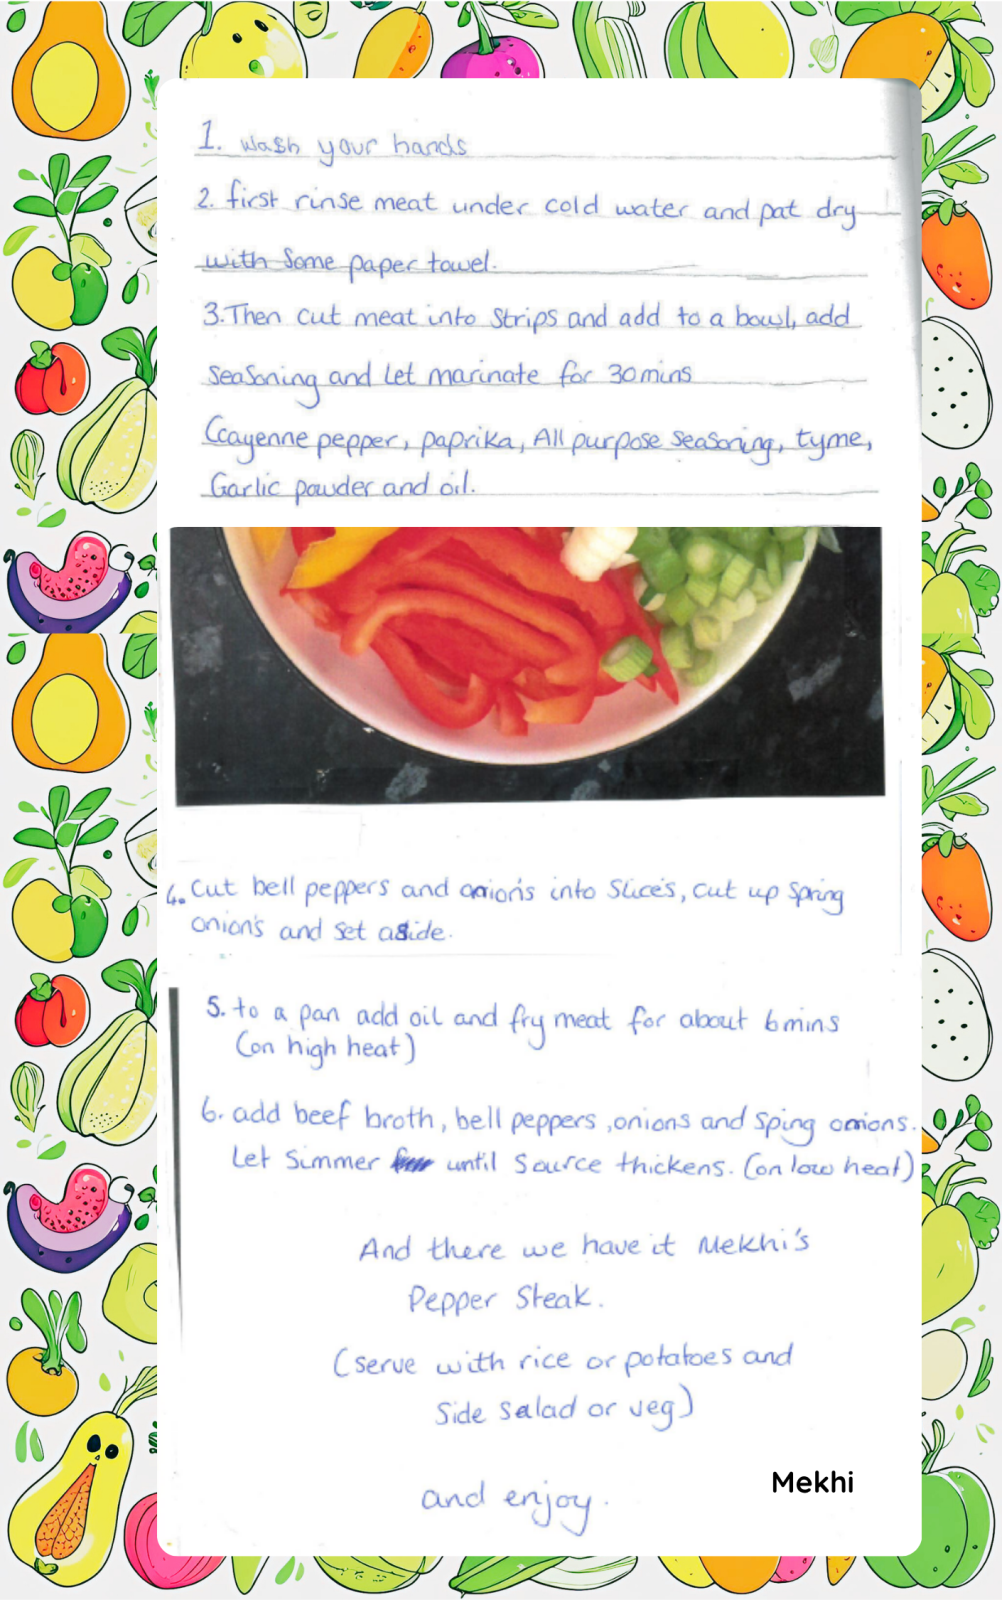 1. wash your hands
2. first rinse meat under cold water and pat dry
with some paper towel.
3. Then cut meat into strips and add to a bowl, add
seasoning and let marinate for 30 mins
(cayenne pepper, paprika, All purpose seasoning, tyme,
Garlic powder and oil.
4. Cut bell peppers and onion's into slices, cut up spring
onion's and set aside.
5. to a pan add oil and fry meat for about 6 mins
(on high heat)
6. add beef broth, bell peppers, onions and sping onions.
Let simmer until source thickens. (on low heat)
And there we have it Mekhi's
Pepper Steak.
(serve with rice or potatoes and
side salad or veg)
and enjoy.
Mekhi